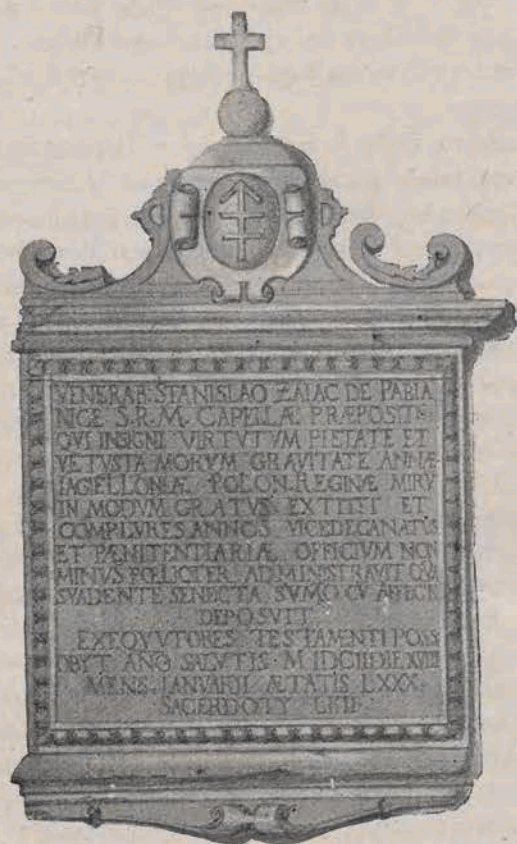 VENERAB. STANISLAO ZAIAC DE PABIA
NICE S.R.M. CAPELLÆ PRÆPOSITO
QVI INSIGNI VIRTVTVM PIETATE ET
VETVSTA MORVM GRAVITATE ANNÆ
IAGIELLONIÆ POLON. REGINÆ MIRV
IN MODVM GRATVS EXTITIT ET
COMPLVRES ANNOS VICEDECANATVS
ET PÆNITENTIARIÆ OFFICIVM NON
MINVS FŒLICITER ADMINISTRAVIT QVA
SVADENTE SENECTA SVMO CV AFFECTV
DEPOSVIT
EXEQVVTORES TESTAMENTI POSS
OBYT ANO SALVTIS
MENS. IANVARII ÆTATIS LXXX.
SACERDOTY